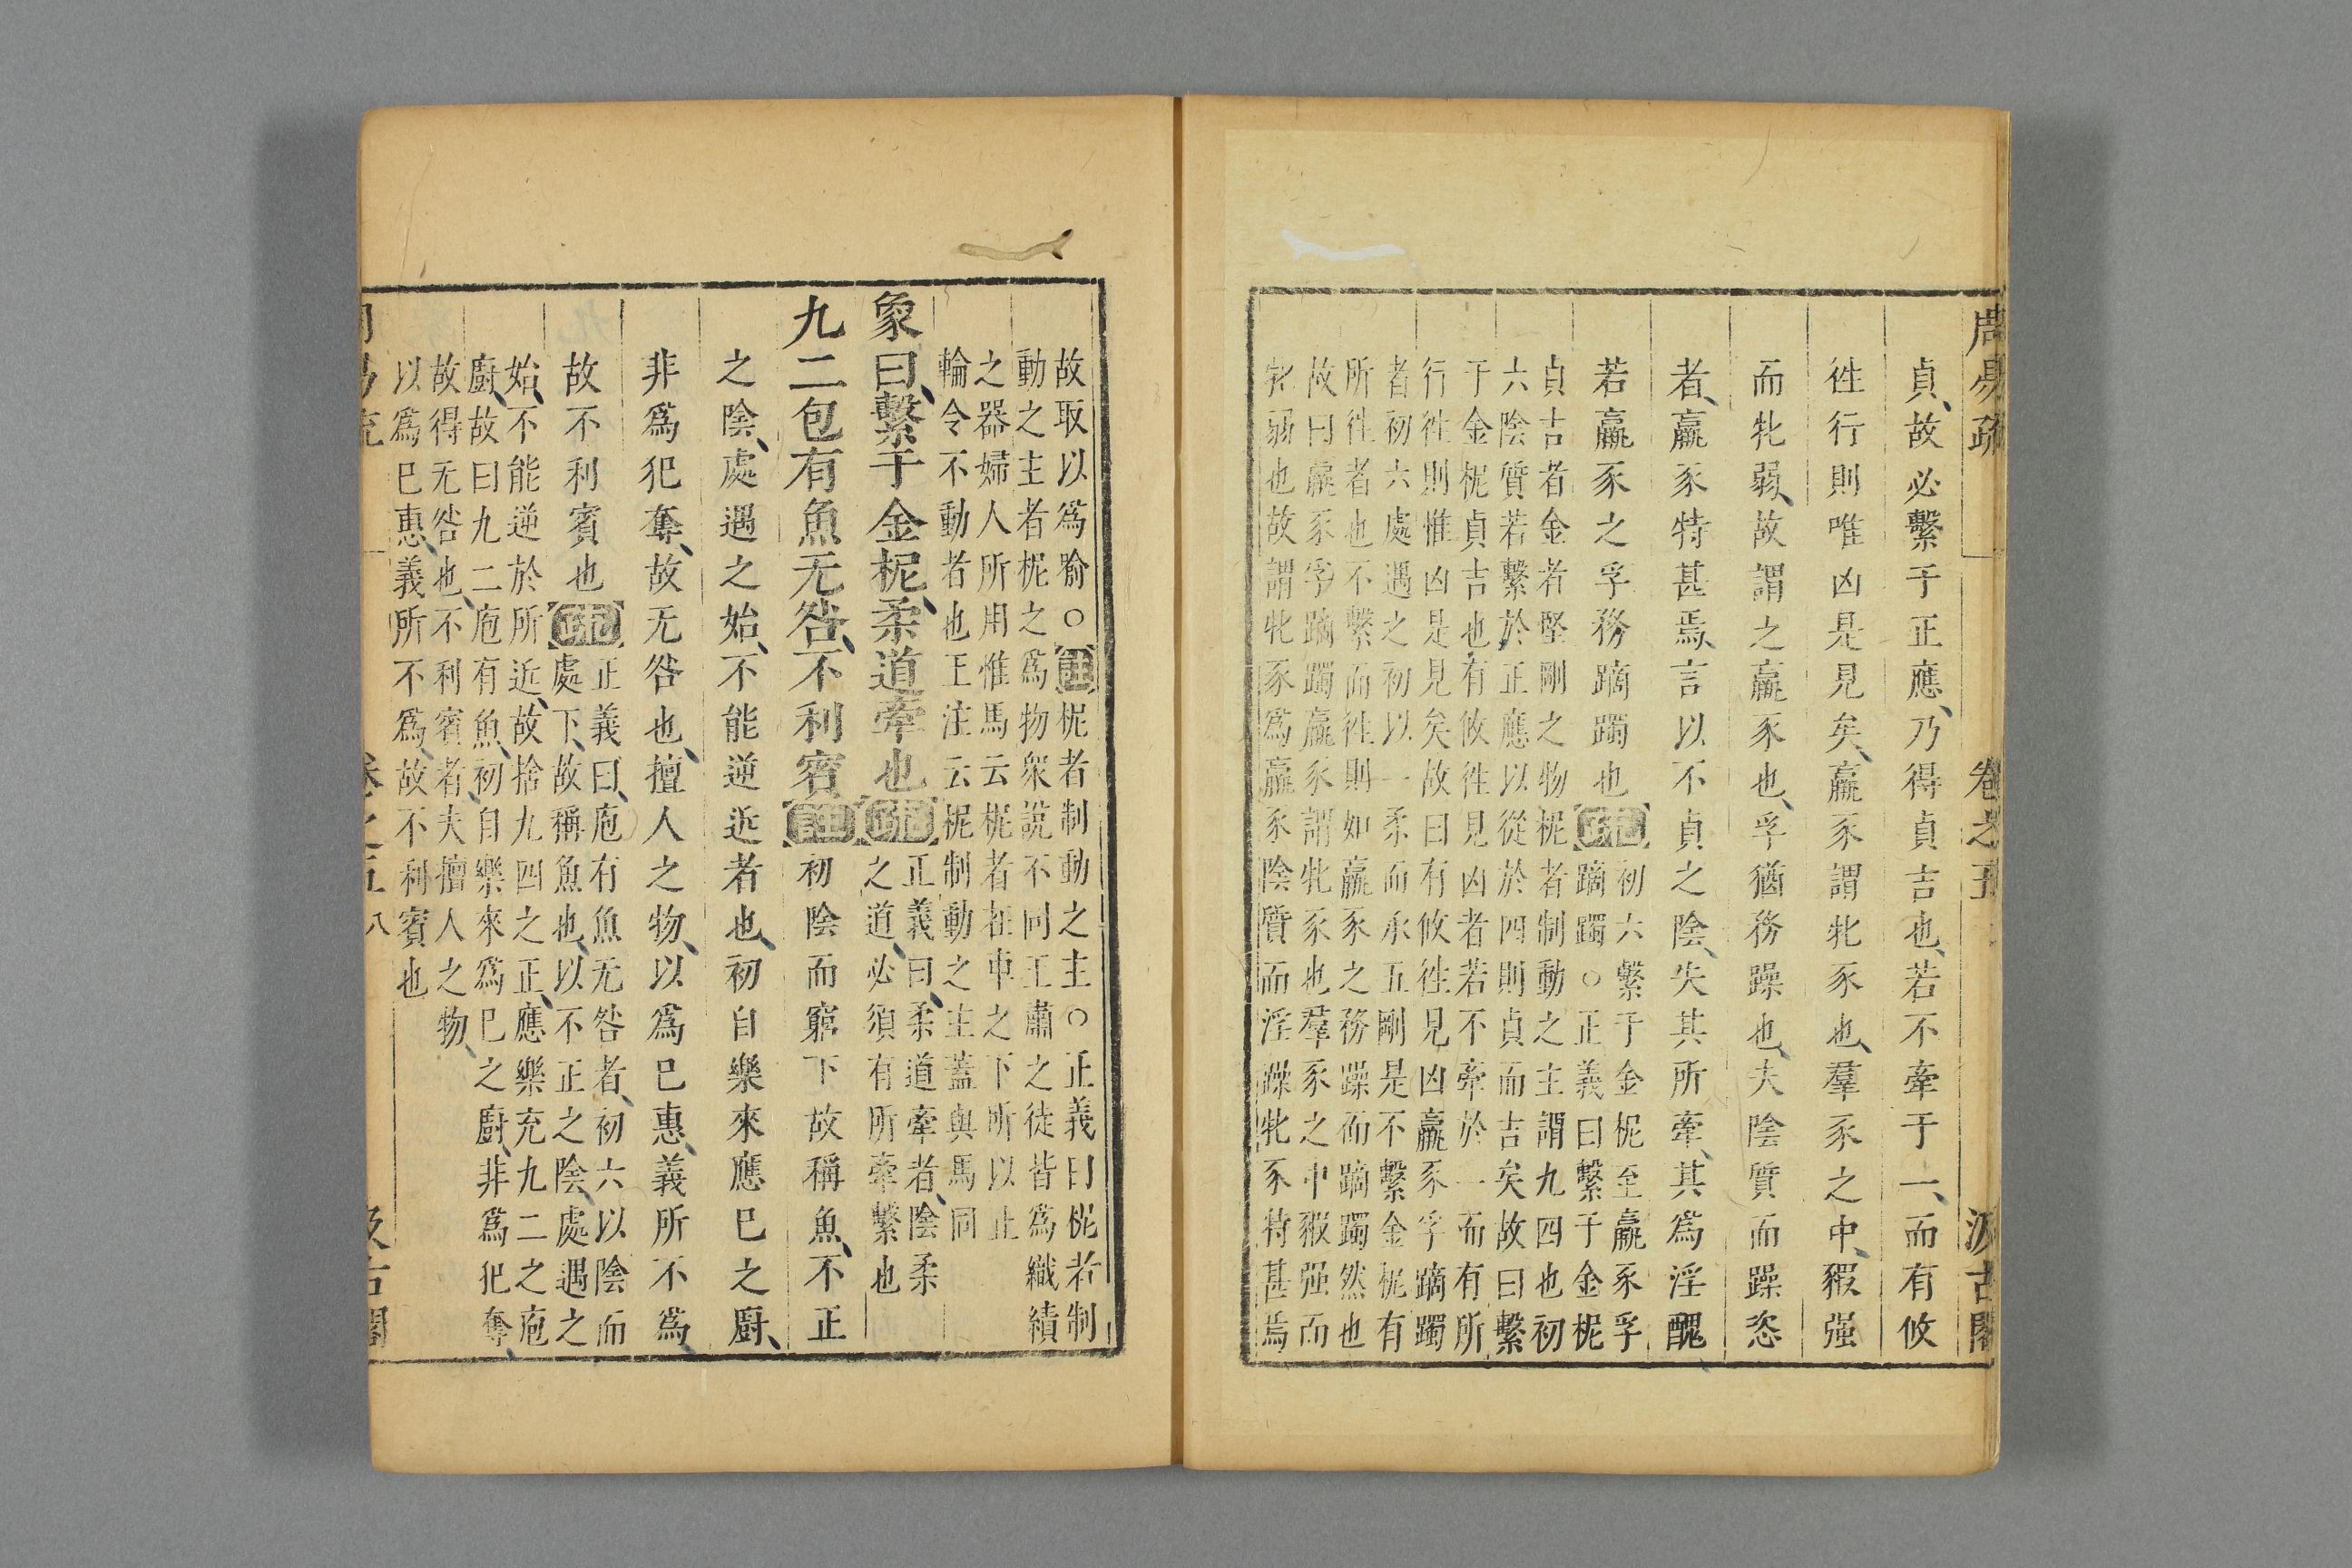 周易疏 卷之五 汲古閣
貞故必繫于正應乃得貞吉也若不牽于一而有攸
徃行則唯凶是見矣羸豕謂牝豕也羣豕之中豭强
而牝弱故謂之羸豕也孚猶務躁也夫陰質而躁恣
者羸豕特甚焉言以不貞之陰失其所牽其爲淫醜
若羸豕之孚務蹢躅也
疏
初六繫于金柅至羸豕孚
蹢躅○正義曰繫于金柅
貞吉者金者堅剛之物柅者制動之主謂九四也初
六陰質若繫於正應以從於四則貞而吉矣故曰繫
于金柅貞吉也有攸徃見凶者若不牽於一而有所
行徃則惟凶是見矣故曰有攸徃見凶羸豕孚蹢躅
者初六處遇之初以一柔而承五剛是不繫金柅有
所徃者也不繫而徃則如羸豕之務躁而蹢躅然也
故曰羸豕孚蹢躅羸豕謂牝豕也羣豕之中豭强而
牝弱也故謂牝豕爲羸豕陰質而淫躁牝豕特甚焉
故取以爲喻○註柅者制動之主○正義曰柅者制
動之主者柅之爲物衆說不同王肅之徒皆爲織績
之器婦人所用惟馬云柅者在車之下所以止
輪令不動者也王注云柅制動之主蓋與馬同
象曰繫于金柅柔道牽也
疏
正義曰柔道牽者陰柔
之道必須有所牽繫也
九二包有魚无咎不利賓
註
初陰而窮下故稱魚不正
之陰處遇之始不能逆近者也初自樂來應巳之廚
非爲犯奪故无咎也擅人之物以爲巳惠義所不爲
故不利賓也
疏
正義曰庖有魚无咎者初六以陰而
處下故稱魚也以不正之陰處遇之
始不能逆於所近故捨九四之正應樂充九二之庖
廚故曰九二庖有魚初自樂來爲巳之廚非爲犯奪
故得无咎也不利賓者夫擅人之物
以爲巳惠義所不爲故不利賓也
卷之五 八